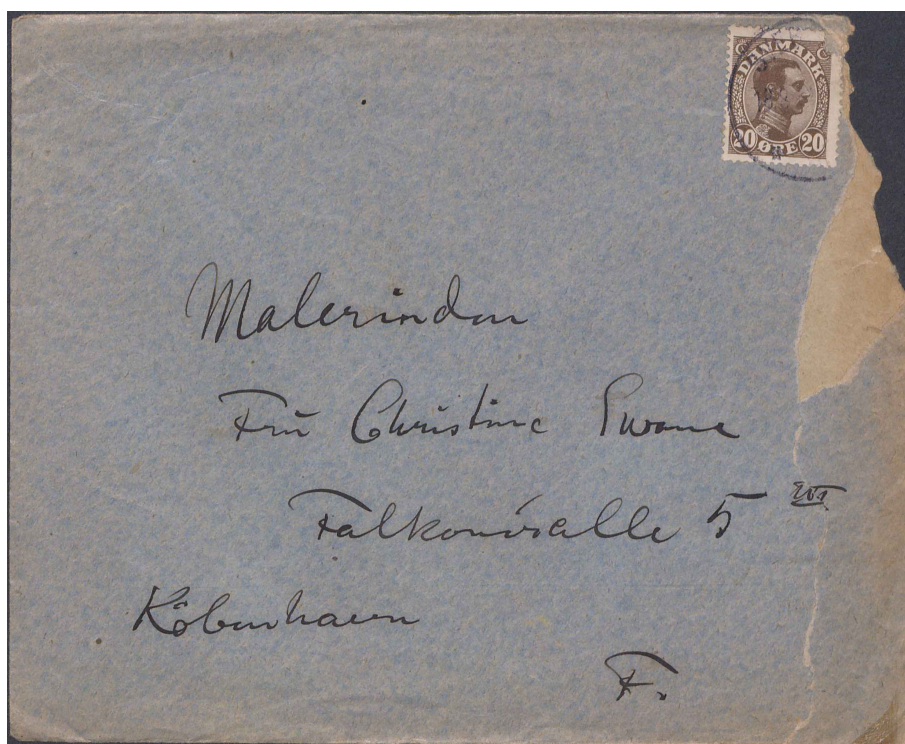 DANMARK
20 ØRE 20
Malerinden
Fru Christine Swane
Falkonéralle 5
København
F.